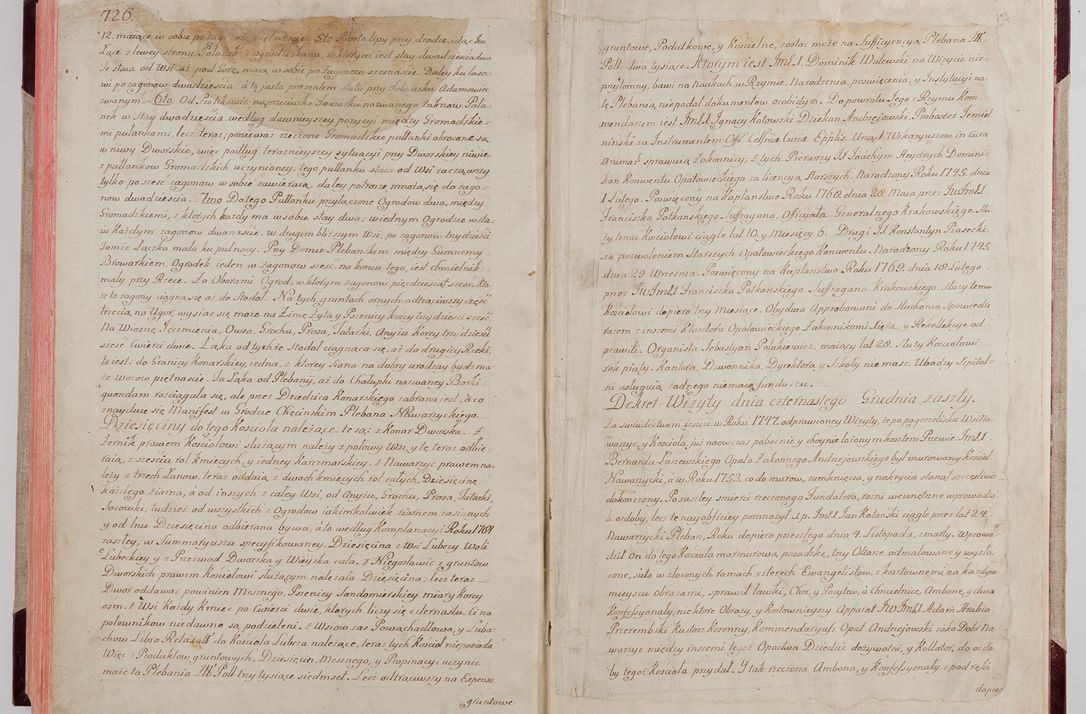 726.
12. maiące w sobie po zagonow piętnascie. 5to Prosta lipy przy drodze idącą ku
Łące z lewey strony Polanek z ogrodzikami, w ktorym iest stay dwadziescia dwa
Te staia od Wsi aż pod Górę, maią w sobie po zagonow szesnascie. Daley ku laso-
wi po zagonow dwadziescia, a to iusta przentem stało przy Folwarku Adamowiec
zwanym. 6to. Od Piotrkowic naprzeciwko Stawarku nazwanego Łuknow Pola-
nek w Stay dwadziescia według dawnieyszey pozycyi między Gromadzkie-
mi pułankami, lecz teraz, ponieważ rzeczone Gromadzkie pułłanki obrocone są
w niwy Dworskie, więc podług teraznieyszey sytuacyi przy Dworskiey niwie
z pułłankow Gromadzkich uczynioney, tego pułłanku staia od Wsi zacząwszy
tylko po szesc zagonow w sobie zawieraią, daley potrosze mnożą się do zago-
now dwudziestu. 7mo Do tego Pułłanku przyłączone Ogrodow dwa, między
Gromadzkiemi, z ktorych każdy ma w sobie stay dwa; w iednym Ogrodzie w sta-
iu Każdym zagonow dwanascie, w drugim blizszym Wsi, po zagonow trzydziesci
Tamże Łączka mała ku pułnocy. Przy Domie Plebańskim między Gumnem y
Browarkiem. Ogrodek ieden w zagonow szesc, na koncu tego, iest chmielnik
mały przy Rzece. Za Oborami Ogrod, w ktorym zagonow pięcdziesiąt szesc. Kto-
re to zagony ciągną się aż do Stodoł. Na tych gruntach ornych odtrąciwszy częsc
trzecią na Ugor, wysiac się może na Zimę Zyta y Pszenicy korcy trzydziesci szesc
Na Wiosnę Jęczmienia, Owsa, Grochu, Prosa, Tatarki, Anyżu Korcy trzydziesci
szesc cwierci dwie. Łąka od tychże Stodoł ciągnąca się, aż do drugiey Rzeki,
to iest do Granicy Konarskiey, iedna, z ktorey Siana na dobry urodzay bydz mo-
że Wozow piętnascie. Ta Łąka od Plebanij, aż do Chałupki nazwaney Borki
quondam rosciągała się, ale przez Dziedzica Konarskiego zabrana iest, o co
znayduie się Manifest w Grodzie Chęcinskim Plebana NNawarzyckiego.
Dziesięciny do tego Kosciola należące te są: z Konar Dworska. Z
Zernik prawem Kosciołowi służącym należy z połowy Wsi, y tę teraz odbie-
raią, z szesciu rol kmiecych, y iedney Karczmarskiey. Z Nawarzyc prawem na-
leży z trzech Łanow, teraz oddaią z dwoch kmiecych rol całych, Dziesięcinę
każdego ziarna, a od inszych z całey Wsi, od Anyżu, Grochu, Prosa, Tatarki,
Soczowki, tudziesz od wszystkich z Ogrodow iakimkolwiek ziarnem zasianych
y od lnu Dziesięcina odbierana bywa, a to według Komplanacyi Roku 1761
zaszłey, w Summaryuszu specyfikowaney. Dziesięcina z Wsi Lubczy Woli
Lubeckiey y z Przezwod Dworska y Wieyska cała. z Niegosławic z gruntow
Dworskich prawem Kosciołowi służącym należała Dziesięcina: lecz teraz
Dwor oddawac powinien Mesznego, Pszenicy Sandomierskiey miary korcy
osm. Z Wsi Każdy kmiec po Cwierci dwie, ktorych liczy się czternastu. Ci na
połownikow niedawno są podzieleni. Z Wsiow zas Powachadłowa, y Luba-
chow Libro Relaxatt do Kosciola Lubcza należące, teraz tych Kosciół nie posiada
Więc z Produktow, gruntowych, Dziesięcin, Mesznego, y Propinacyi uczynic
może ta Plebania Złł. Poll. trzy tysiące siedmset. Lecz odtrąciwszy na Expensa
gruntowe
gruntowe, Podatkowe, y Koscielne, zostac może na Sufficyencyą Plebana Złł.
Poll. dwa tysiące. Ktorym iest Jmć X. Dominik Walewski na Wizycie nie-
przytomny, bawi na Naukach w Rzymie. Narodzenia, poswięcenia, y Instytucyi na
tę Plebanią, nie podał dokumentow osobistych. Do powrotu Jego z Rzymu Kom-
mendarzem iest Jmć X. Ignacy Kotowski Dziekan Andrzejowski, Proboszcz Imiel-
ninski za Instrumentem Offi. Celsma Curia Epplis. Urząd Wikaryuszow in Cura
Animar. sprawuią Zakonnicy; z tych Pierwszy Xd. Joachym Heydrych Domini-
kan Konwentu Opatowieckiego za licencyą Starszych. Narodzony Roku 1745. dnia
1. Lutego. Poswięcony na Kaplanstwo Roku 1768. dnia 28. Marca przez JWJmć X.
Franciszka Potkanskiego Suffragana, Officyała Generalnego Krakowskiego. Słu-
ży temu Kosciołowi ciągle lat 10. y Miesięcy 6. Drugi Xd Konstantyn Piasecki
za pozwoleniem Starszych Opatowieckiego Konwentu. Narodzony Roku 1745.
dnia 29. Wrzesnia Poswięcony na Kaplanstwo Roku 1769. dnia 18. Lutego
przez JWJmć X. Franciszka Potkanskiego Suffragana Krakowskiego. służy temu
Kosciołowi dopiero trzy Miesiące. Obydwa Approbowani do Słuchania Spowiedzi
razem z inszemi Klasztoru Opatowieckiego Zakonnikami Xięża, y Rekollekcye od-
prawili. Organista Sebastyan Polakiewicz, maiący lat 28. służy Kosciołowi
rok piąty. Kantora, Dzwonnika, Dyrektora, y Szkoły nie masz. Ubodzy Szpital-
ni usługuią, żadnego niemaią funduszu.
Dekret Wizyty dnia czternastego Grudnia zaszły.
Za swiadectwem ieszcze w Roku 1747. odprawioney Wizyty, że po pogorzelisku Wsi Na-
warzyc, y Kosciola, iuż nowczas pobożnie y choynie łożonym kosztem Przewie. Jmć X.
Bernarda Łaszewskiego Opata Zakonnego Andrzejowskiego był murowany Kosciół
Nawarzycki, a w Roku 1753. co do murow, zamknięcia, y nakrycia stanął szczęsliwie
dokończony. Po zaszłey smierci rzeczonego Fundatora, rozni wewnętrzne wprowadza-
li ozdoby, lecz te nayobficiey pomnożył s.p. Jmć X. Jan Kołański ciągle przez lat 24.
Nawarzycki Pleban. Roku dopiero przeszłego dnia 4. Listopada, zmarły. Wprowa-
dził On do tego Kosciola marmurową posadzkę, trzy Ołtarze odmalowane y wyzło-
cone, suto w złoconych ramach czterech Ewangelistow, z kosztownemi na każdym
mieyscu Obrazami, sprawił Ławki, Chor, y Pozytew, a Chrzcielnice, Ambonę, y dwa
Konfessyonały, niektore Obrazy, y Kosztownieyszy Apparat JWJmć X. Adam Hrabia
Przerembski Kustosz Koronny, Kommendaryusz Opat Andrzejowski iako Dobr Na-
warzyc między inszemi tegoż Opactwa Dziedzic dożywotni, y Kollator, do ozdo-
by tegoż Kosciola przydał. Y tak rzeczona Ambona, y Konfessyonały z pod ręki
dopie